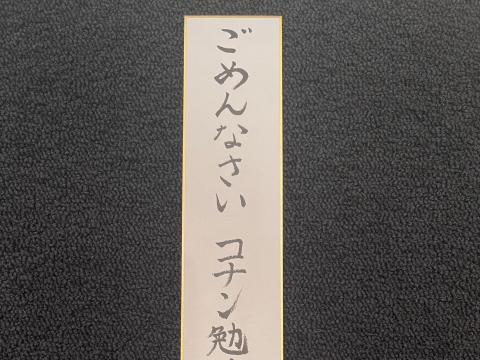 ごめんなさい コナン勉